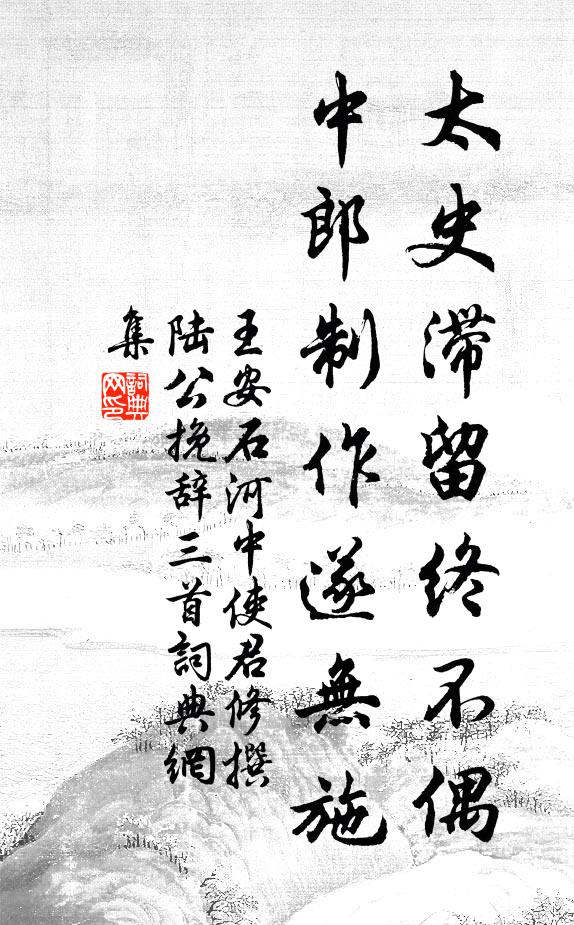 太史滞留终不偶
中郎制作遂無施
王安石河中使君修撰
陆公挽辞三首詞典網
集
詞典
网印